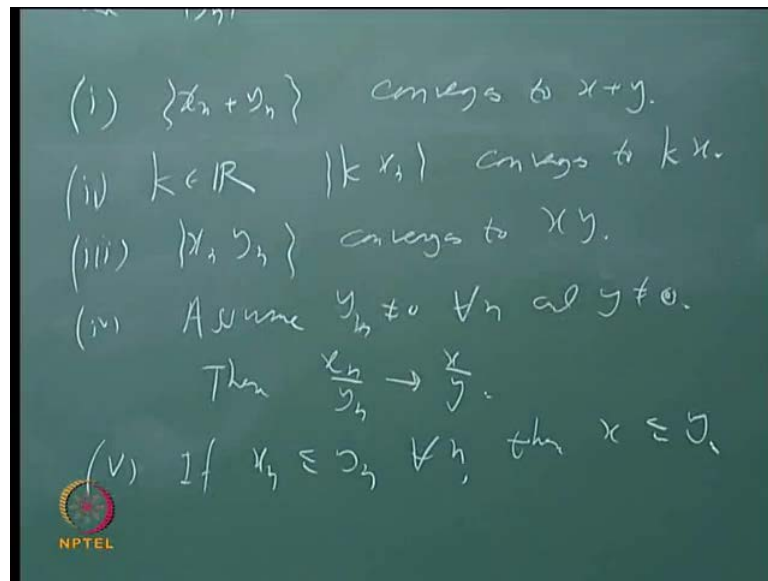 (i) {xₙ + yₙ} converges to x+y.
(ii) k ∈ ℝ {k xₙ} converges to k x.
(iii) {xₙ yₙ} converges to x y.
(iv) Assume yₙ ≠ 0 ∀n and y ≠ 0.
Then xₙ/yₙ → x/y.
(v) If xₙ ≤ yₙ ∀n, then x ≤ y.
NPTEL